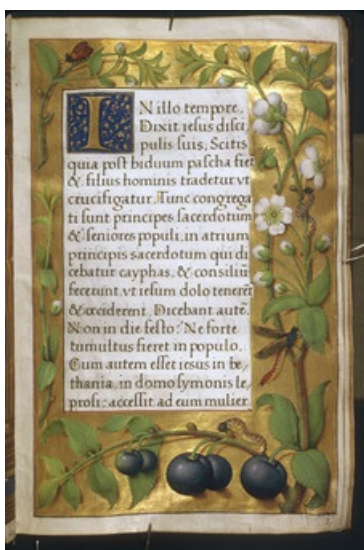 IN illo tempore,
Dixit iesus disci
pulis suis, Scitis
quia post biduum pascha fiet
& filius hominis tradetur vt
crucifigatur. Tunc congrega
ti sunt principes sacerdotum
& seniores populi, in atrium
principis sacerdotum qui di
cebatur cayphas, & consiliũ
fecerunt, vt iesum dolo tenerẽt
& occiderent. Dicebant autẽ.
Non in die festo: Ne forte
tumultus fieret in populo.
Cum autem esset iesus in be,
thania, in domo symonis le,
prosi: accessit ad eum mulier